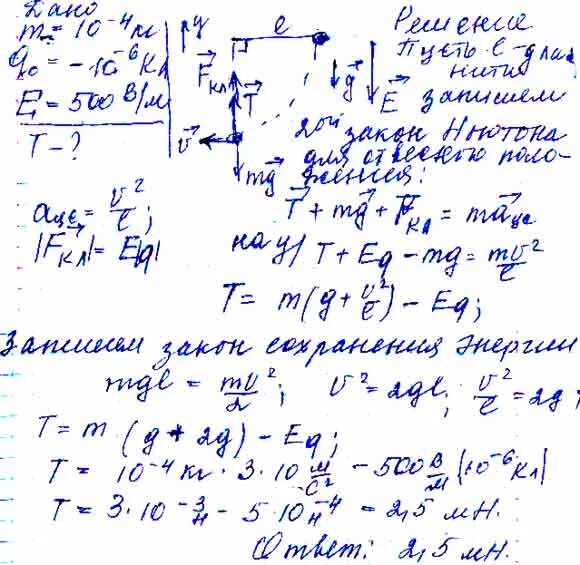 Дано
m = 10⁻⁴ кг
q₀ = -10⁻⁶ Кл
E = 500 В/м
T - ?
y
l
F⃗кл
T⃗
v⃗
mg⃗
g⃗
E⃗
Решение
Пусть l - длина
нити
запишем
2ой закон Ньютона
для отвесного поло-
жения:
T⃗ + mg⃗ + F⃗кл = ma⃗цс
aцс = v²/l;
|F⃗кл| = E|q|
на y/ T + Eq - mg = mv²/l
T = m(g + v²/l) - Eq;
Запишем закон сохранения энергии
mgl = mv²/2; v² = 2gl; v²/l = 2g;
T = m (g + 2g) - Eq;
T = 10⁻⁴ кг · 3 · 10 м/с² - 500 В/м |10⁻⁶ Кл|
T = 3 · 10⁻³ н - 5 · 10⁻⁴ н = 2,5 мН.
Ответ: 2,5 мН.